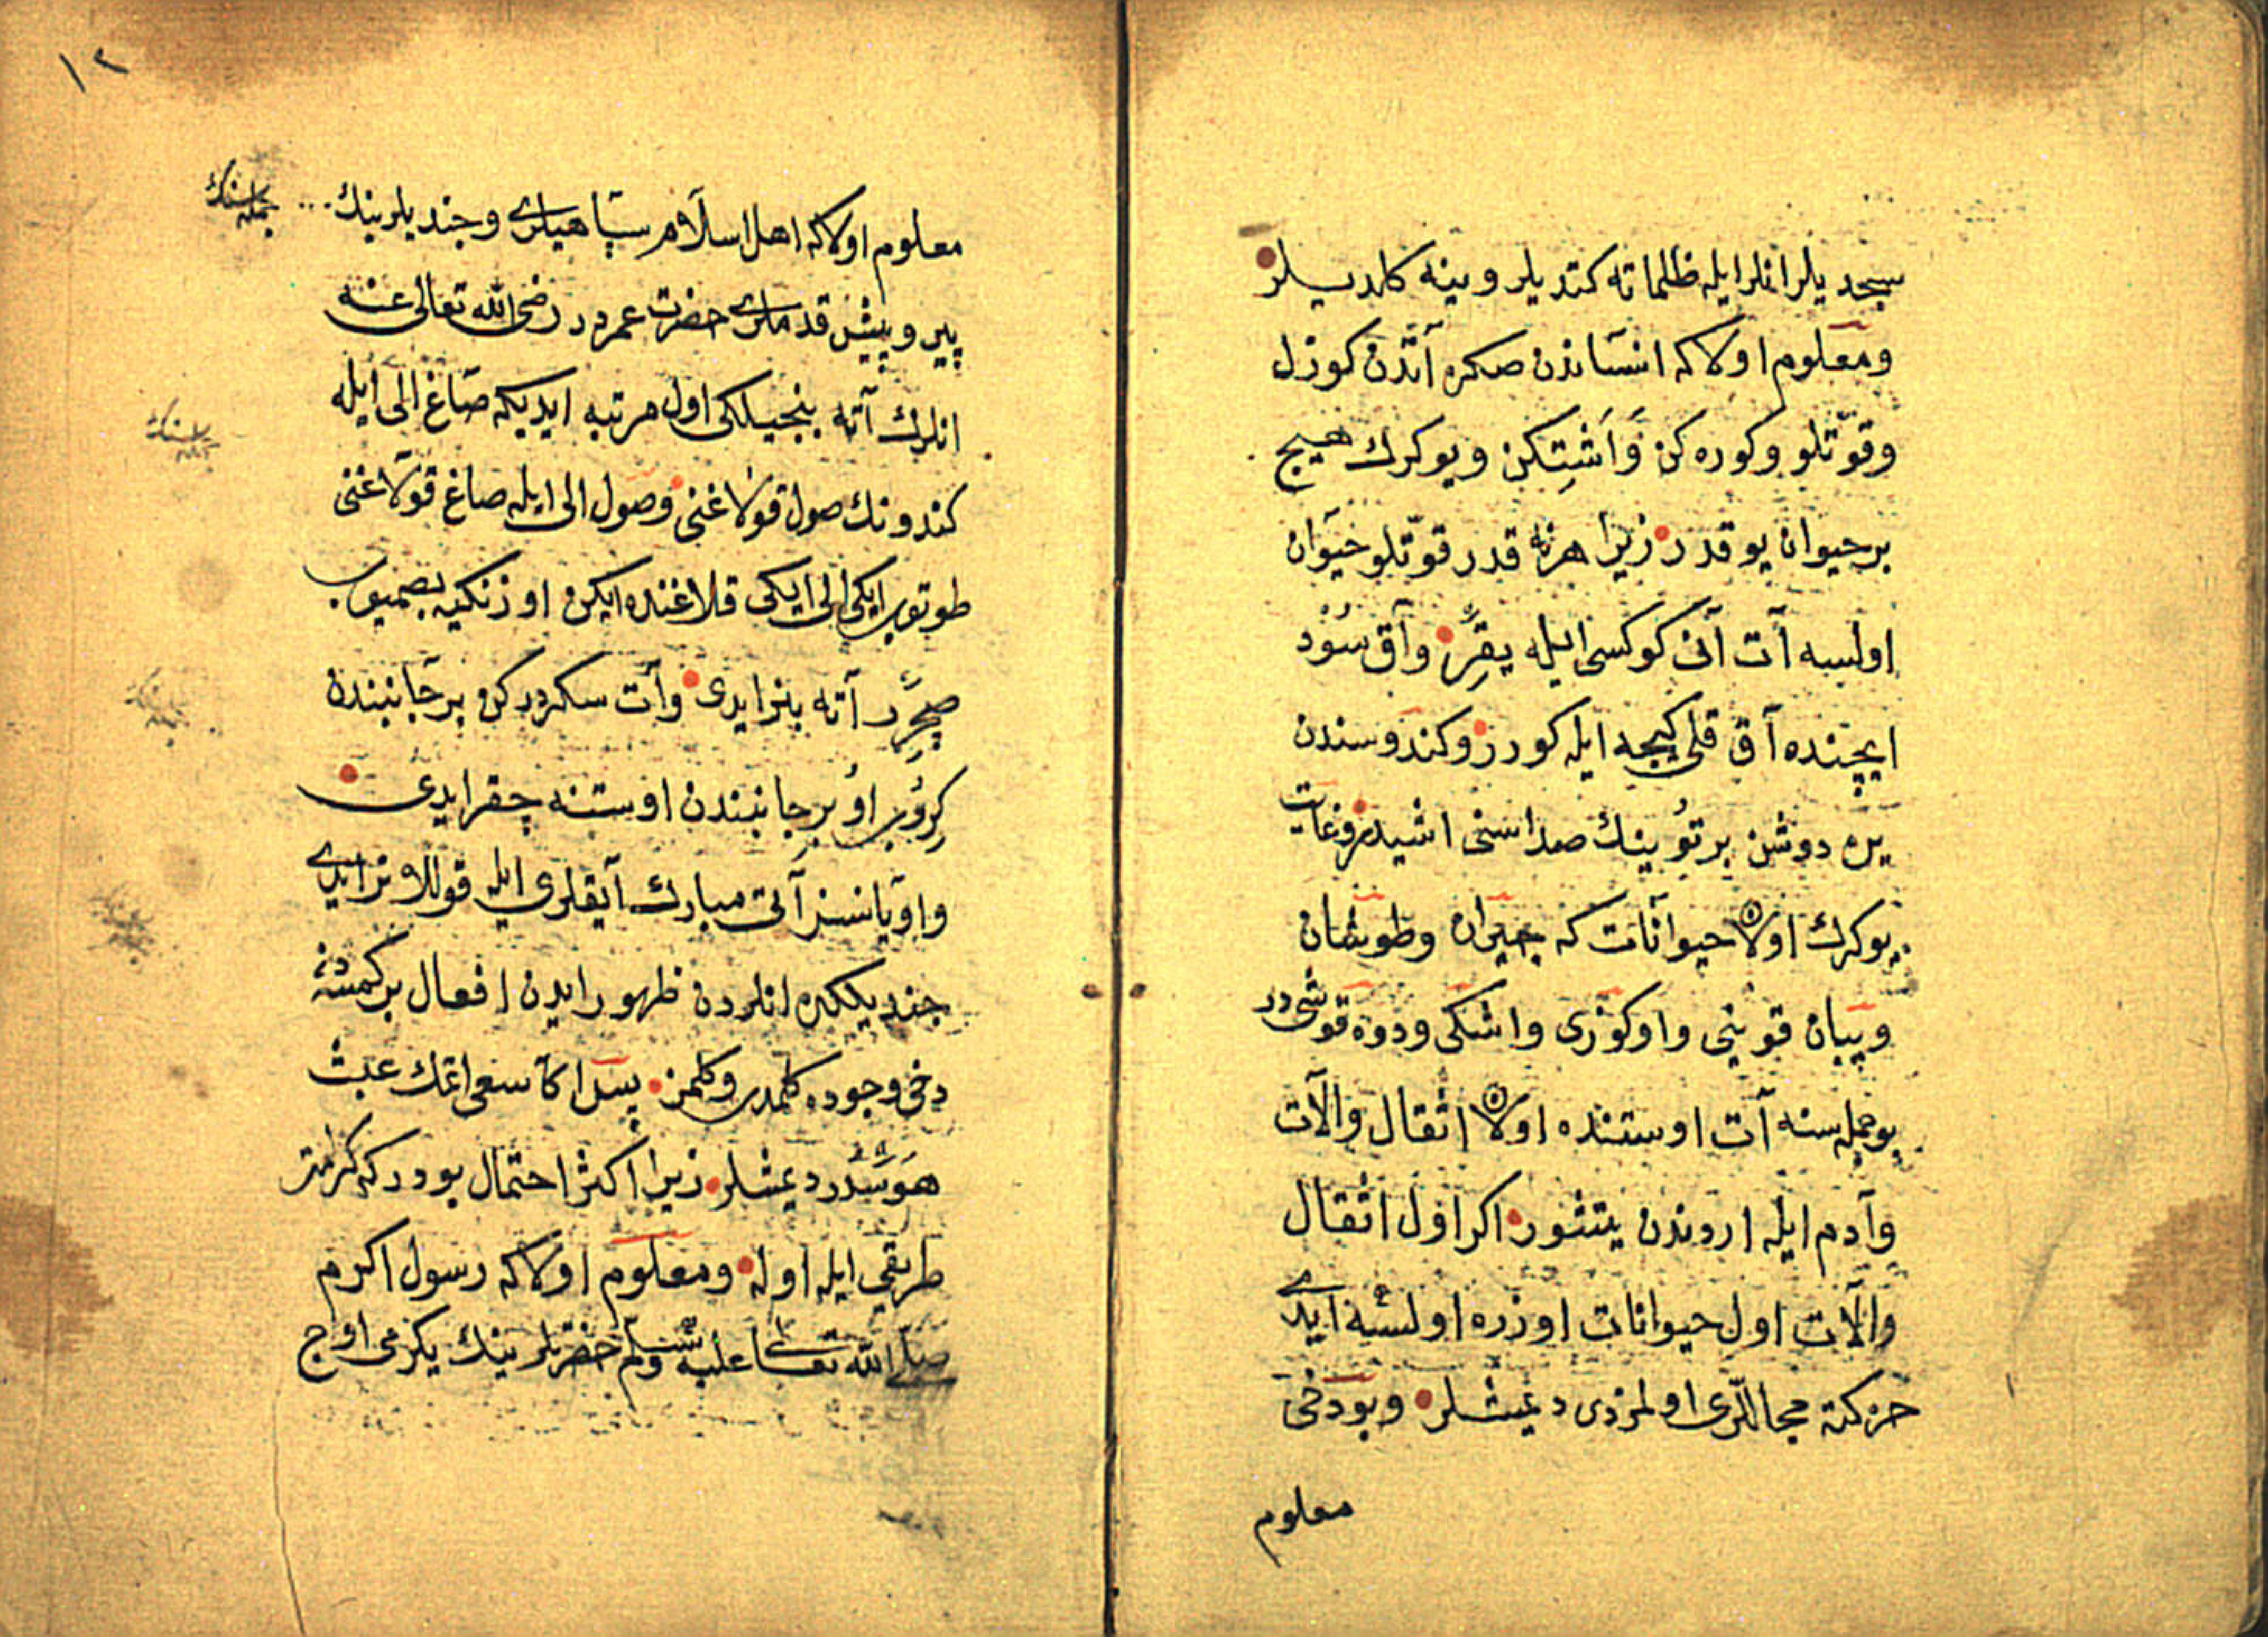 سچدیلر انلر ایله ظلماته کتدیلر وینه کلدیلر
ومعلوم اولا که انساندن صکره آتدن کوزل
وقوّتلو وکوره کن وَاَشِتکن ویوکرك هیچ
برحیوان یوقدر زیرا هرنه قدر قوّتلو حیوان
اولسه آت آنی کوکسی ایله یقر وآق سُود
ایچنده آق قلی کیجه ایله کورر وکندوسندن
یره دوشن برتوُینك صداسنی اشیدر وغایت
یوکرك اولان حیوانات که جیران وطوشان
ویبان قوینی واوکوزی واشکی ودوه قوشی در
بوجمله سنه آت اوستنده اولان اثقال والآت
وآدم ایله اردندن یتشور اکر اول اثقال
والآت اول حیوانات اوزره اولسه ایدی
حرکته مجاللری اولمزدی دیمشلر وبودخی
معلوم
١٢
معلوم اولا که اهل اسلام سپاهیلری وجندیلرینك
جمله سنك
پیر وپیش قدملری حضرت عمردر رضی الله تعالی عنه
انلرك آته بنجیلکی اول مرتبه ایدیکه صاغ الی ایله
کندونك صول قولاغنی وصول الی ایله صاغ قولاغنی
طوتوب ایکی الی ایکی قلاغنده ایکن اوزنکیه بصمیوب
صچرر آته بنر ایدی وآت سکردرکن برجانبندن
کروب اوُ برجانبندن اوستنه چقر ایدی
واویانسز آتی مبارك آیقلری ایله قوللانر ایدی
جندیلکده انلردن ظهور ایدن افعال برکمسه دن
دخی وجوده کلمدی وکلمز پس اکا سعی اتمك عبث
هَوَسدر دیمشلر زیرا اکثر احتمال بودر که کرامت
طریقی ایله اوله ومعلوم اولا که رسول اکرم
صلی الله تعالی علیه وسلم حضرتلرینك یکرمی اوج